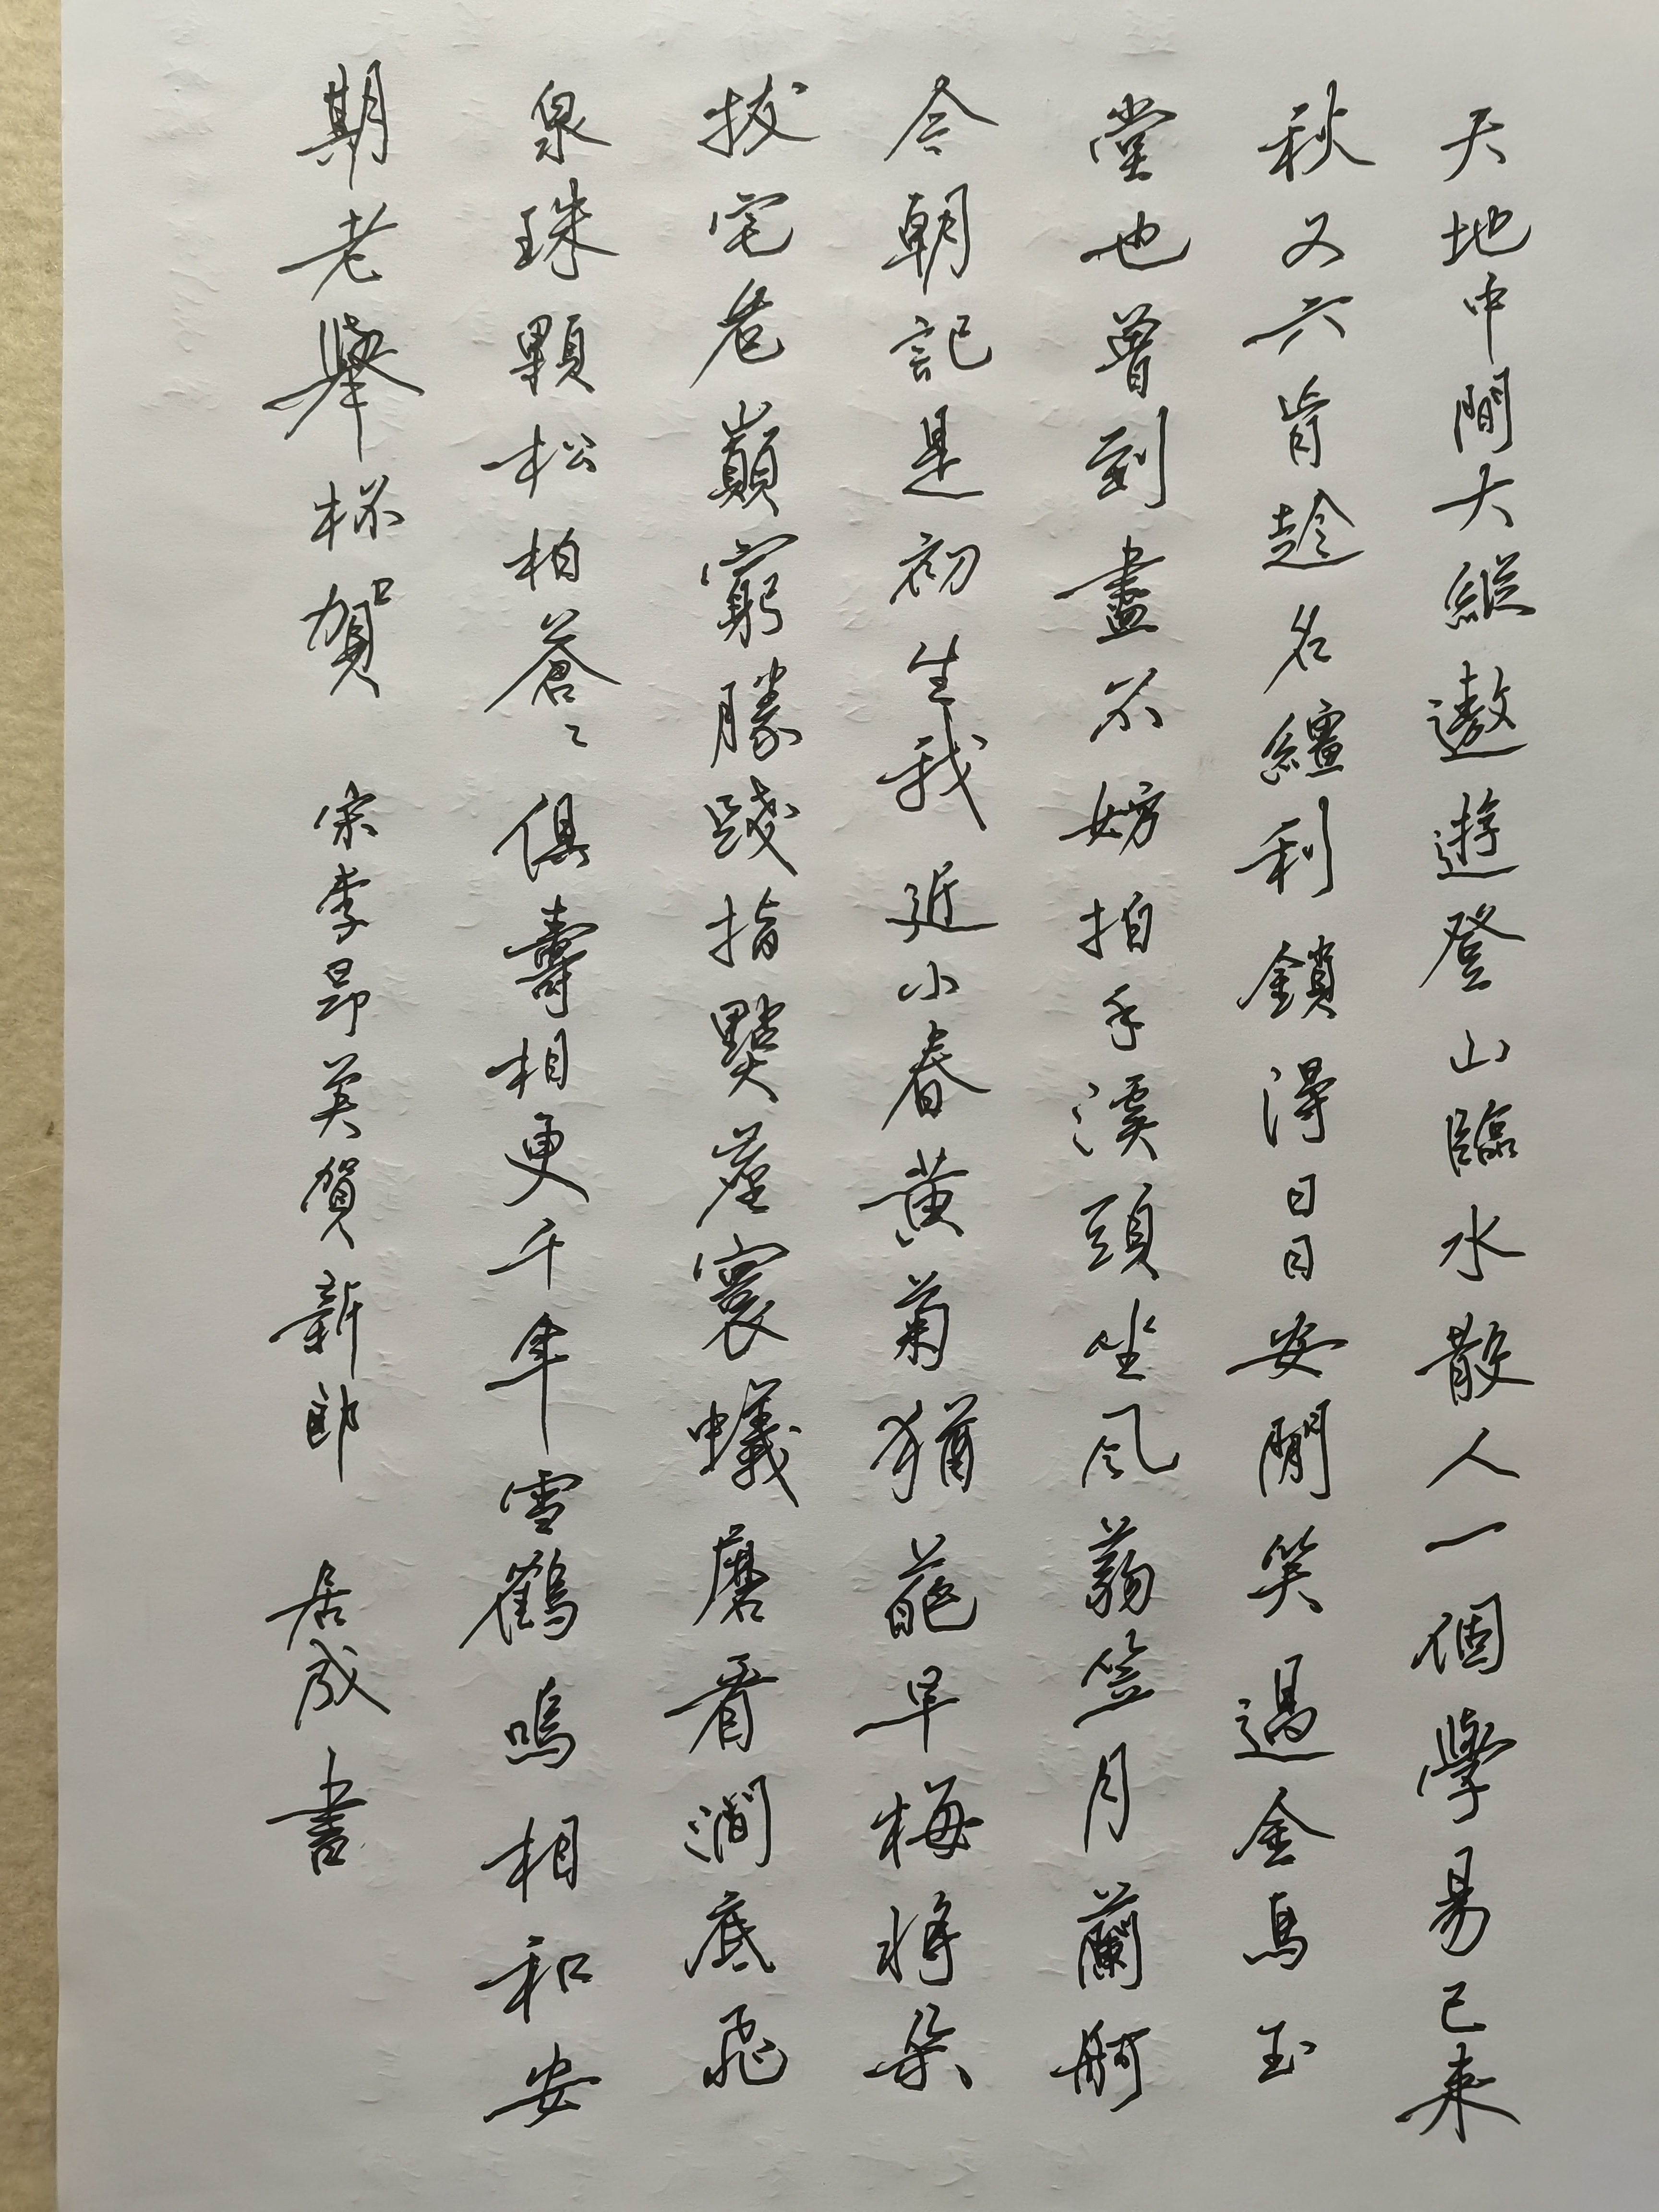 天地中間大縱遨遊登山臨水散人一個學易已來
秋又六肯趁名繮利鎖得日日安閒笑過金馬玉
堂也曾到盡不妨拍手溪頭坐風蒻笠月蘭舸
今朝記是初生我近小春黄菊猶葩早梅將朵
拔宅老巔窮勝踐指點塵寰蟻磨看澗底飛
泉珠顆松柏蒼〻俱壽相更千年雪鶴鳴相和安
期老舉桮賀 宋李昴英賀新郎 居成書